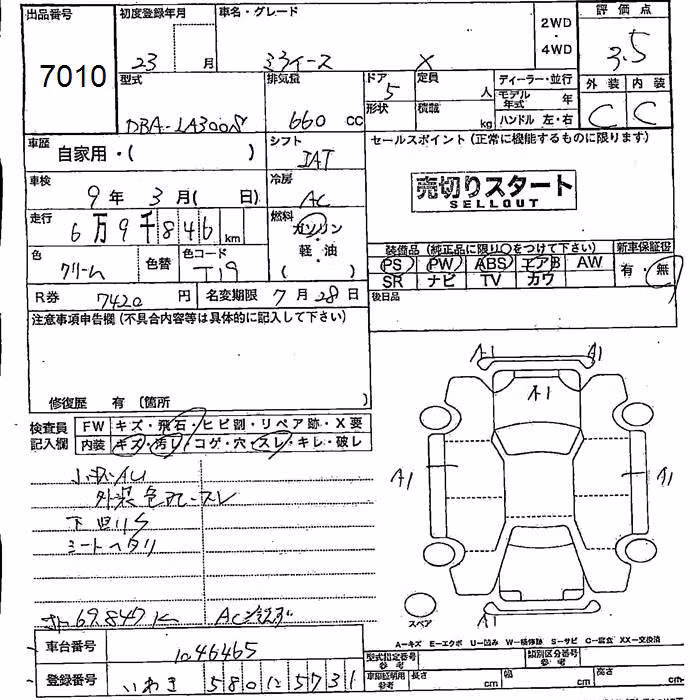 出品番号 初度登録年月 車名・グレード 2WD・4WD 評価点
7010 23 月 ミライース X 3.5
型式 排気量 ドア 定員 ディーラー・並行 外装 内装
DBA-LA300S 660 cc 5 人 モデル年式 年 C C
形状 積載 kg ハンドル 左・右
車歴 自家用・( ) シフト IAT セールスポイント(正常に機能するものに限ります)
車検 9年 3月( 日) 冷房 AC
売切りスタート
SELLOUT
走行 6万9千846 km 燃料 ガソリン・軽・油 ( )
装備品(純正品に限り○をつけて下さい) 新車保証役
色 クリーム 色替 色コード T19
PS PW ABS エアB AW 有・無
SR ナビ TV カワ
R券 7420 円 名変期限 7月28日 後日品
注意事項申告欄(不具合内容等は具体的に記入して下さい)
修復歴 有 (箇所 )
検査員記入欄 FW キズ・飛石・ヒビ割・リペア跡・X要
内装 キズ・汚レ・コゲ・穴・スレ・キレ・破レ
A1 A1
A1
A1 A1
小キズAU
下回りS
シートヘタリ
スペア A1
69.847K
A-キズ E-エクボ U-凹み W-補修跡 S-サビ C-腐食 XX-交換済
車台番号 1046465
型式指定番号 参考 類別区分番号 参考
登録番号 いわき 580 に 5731
車庫証明用 参考 長さ cm 幅 cm 高さ cm